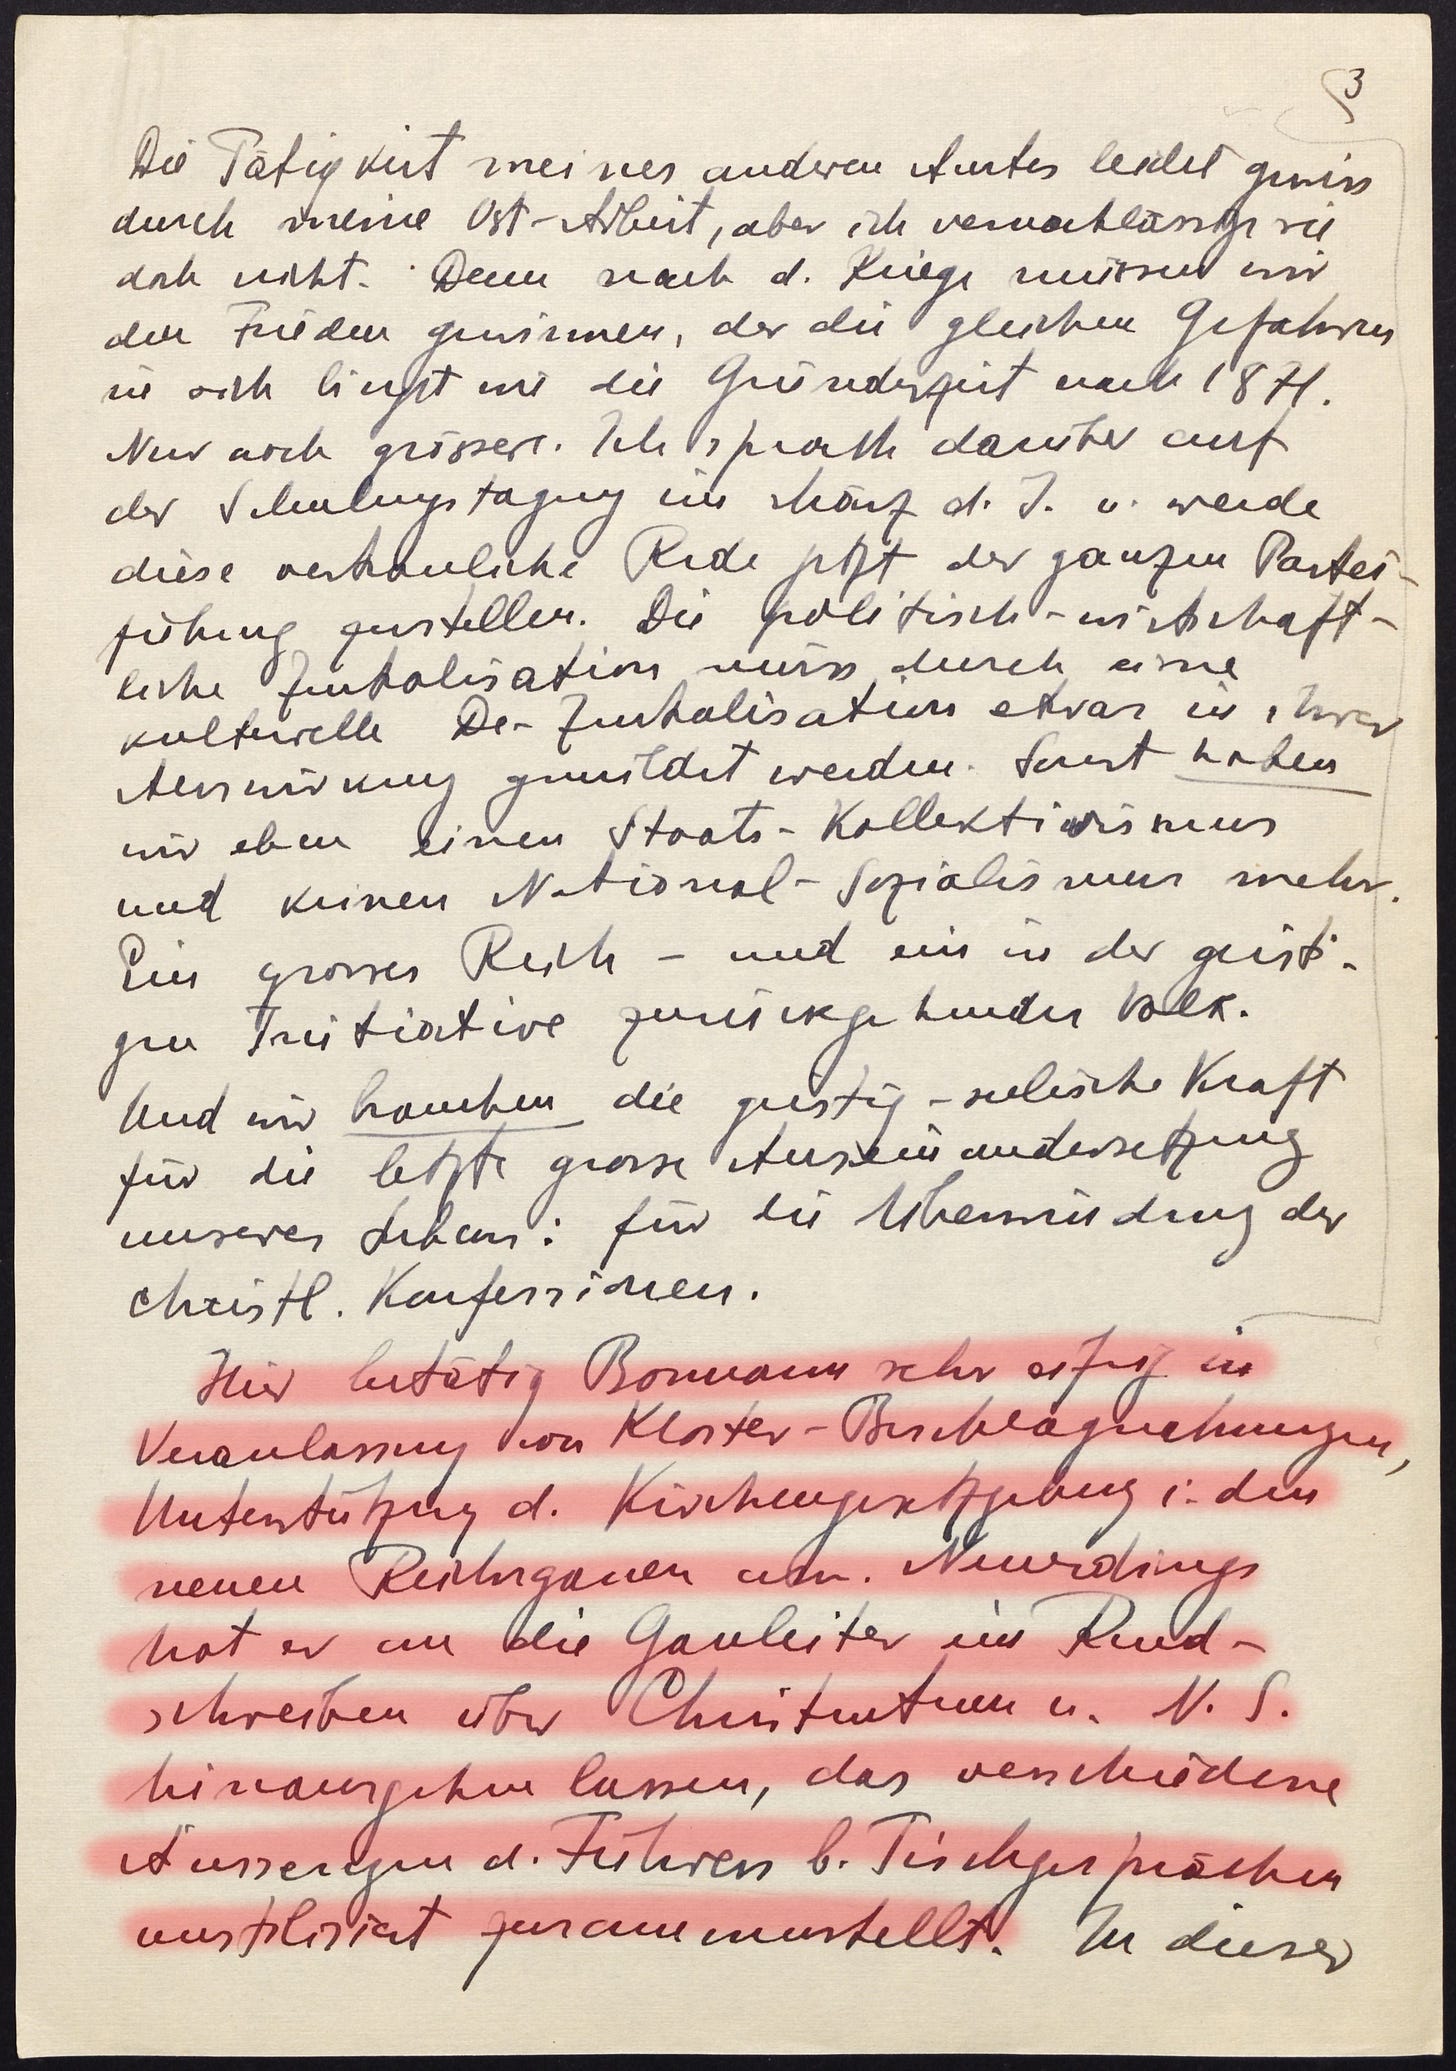 3
Die Tätigkeit meines anderen Amtes leidet gewiss
durch meine Ost-Arbeit, aber ich vernachlässige sie
doch nicht. Denn nach d. Kriege müssen wir
den Frieden gewinnen, der die gleichen Gefahren
in sich birgt wie die Gründerzeit nach 1871.
Nur noch grössere. Ich sprach darüber auf
der Schulungstagung im März d. J. u. werde
diese vertrauliche Rede jetzt der ganzen Partei-
führung zustellen. Die politisch-wirtschaft-
liche Zentralisation muss durch eine
kulturelle De-Zentralisation etwas in ihrer
Auswirkung gemildet werden. Sonst haben
wir eben einen Staats-Kollektivismus
und keinen National-Sozialismus mehr.
Ein grosses Reich – und ein in der geisti-
gen Initiative zurückgehendes Volk.
Und wir brauchen die geistig-seelische Kraft
für die letzte grosse Auseinandersetzung
unseres Lebens: für die Überwindung der
christl. Konfessionen.
Hier betätig Bormann sehr eifrig in
Veranlassung von Kloster-Beschlagnahmungen,
Unterstützung d. Kirchengesetzgebung i. den
neuen Reichsgauen usw. Neuerdings
hat er an die Gauleiter ein Rund-
schreiben über Christentum u. N. S.
hinausgehen lassen, das verschiedene
Äusserungen d. Führers b. Tischgesprächen
unstilisiert zusammenstellt. In dieser